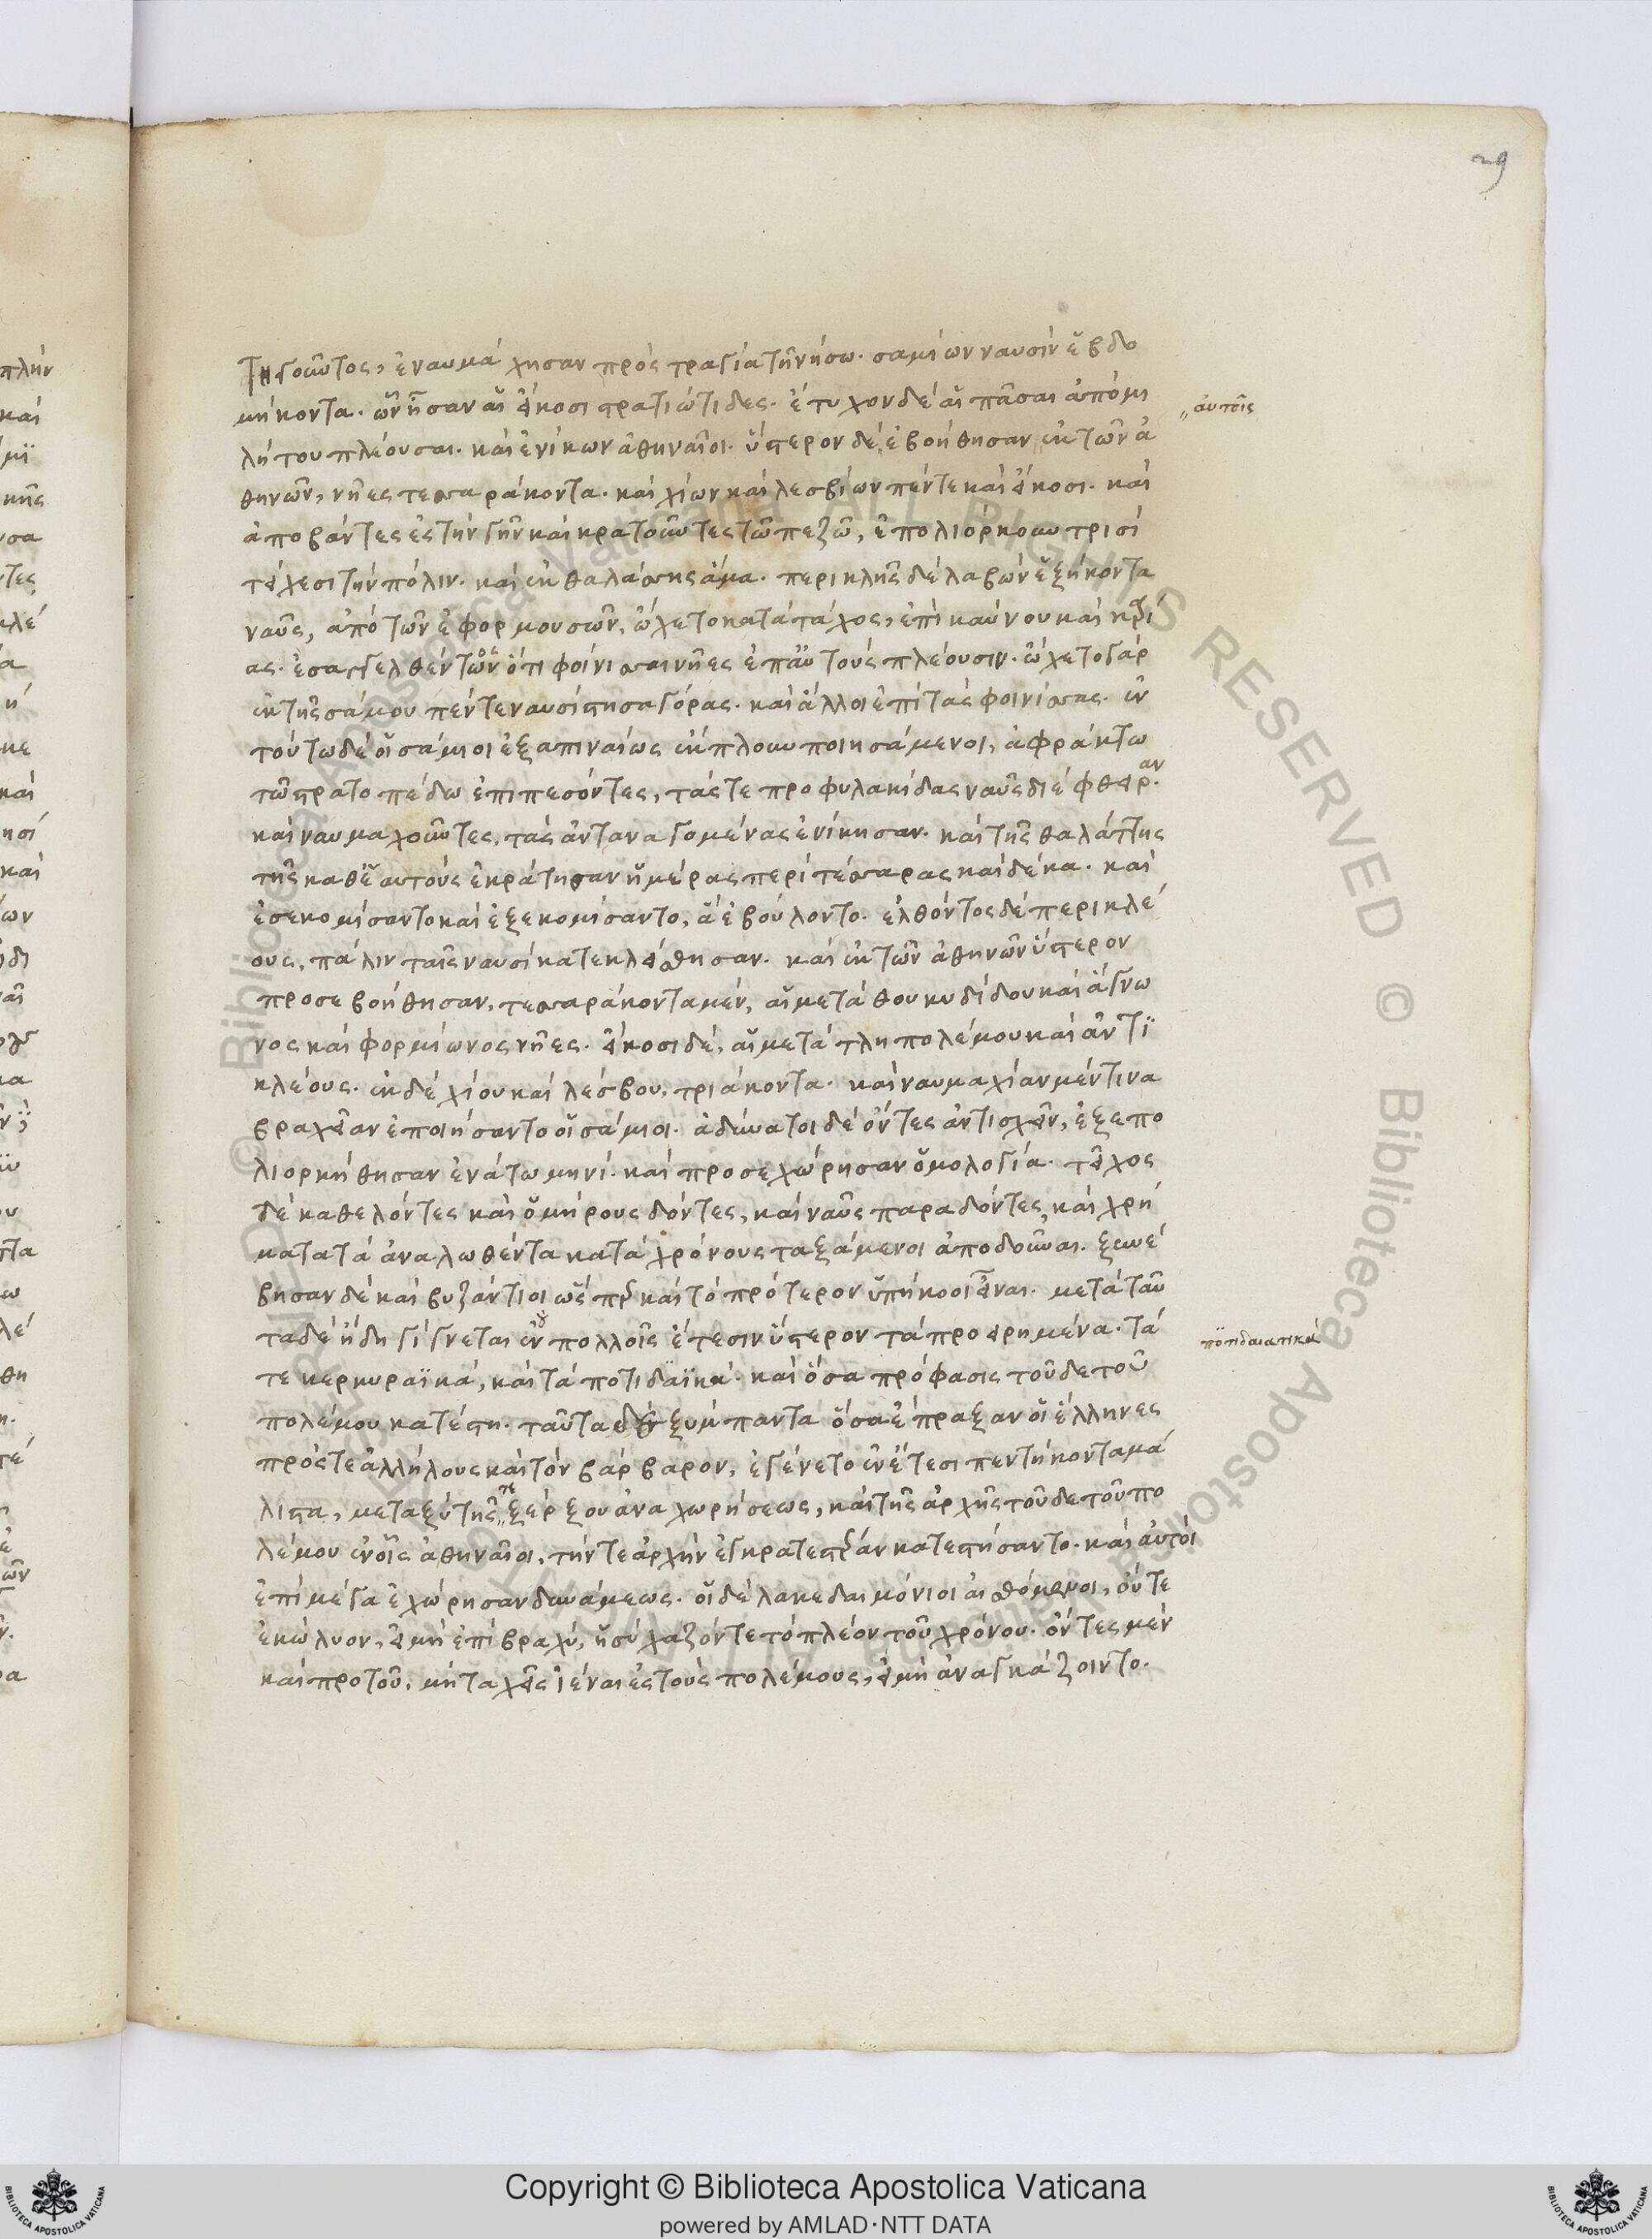 29
τηγοῦντος, ἐναυμάχησαν πρὸς τραγία τῆ νήσω. σαμίων ναυσὶν ἑβδο
μήκοντα. ὧν ἦσαν αἱ εἴκοσι στρατιώτιδες. ἔτυχον δὲ αἱ πᾶσαι ἀπὸ μι
λήτου πλέουσαι. καὶ ἐνίκων ἀθηναῖοι. ὕστερον δὲ „ ἐβοήθησαν ἐκ τῶν ἀ
„ αὐτοῖς
θηνῶν, νῆες τεσσαράκοντα. καὶ χίων καὶ λεσβίων πέντε καὶ εἴκοσι. καὶ
ἀποβάντες ἐς τὴν γῆν καὶ κρατοῦντες τῶ πεζῶ, ἐπολιόρκουν τρισὶ
τείχεσι τὴν πόλιν. καὶ ἐκ θαλάσσης ἅμα. περικλῆς δὲ λαβὼν ἑξήκοντα
ναῦς, ἀπὸ τῶν ἐφορμουσῶν, ὤχετο κατὰ τάχος, ἐπὶ καύνου καὶ καρί
ας. ἐσαγγελθέντων ὅτι φοίνισσαι νῆες ἐπ' αὐτοὺς πλέουσιν. ὤχετο γὰρ
ἐκ τῆς σάμου πέντε ναυσὶ στησαγόρας. καὶ ἄλλοι ἐπὶ τὰς φοινίσσας. ἐν
τούτω δὲ οἱ σάμιοι ἐξαπιναίως ἔκπλουν ποιησάμενοι, ἀφράκτω
τῶ στρατοπέδω ἐπιπεσόντες, τάς τε προφυλακίδας ναῦς διέφθειραν.
καὶ ναυμαχοῦντες, τὰς ἀνταναγομένας ἐνίκησαν. καὶ τῆς θαλάττης
τῆς καθ' ἑαυτοὺς ἐκράτησαν ἡμέρας περὶ τέσσαρας καὶ δέκα. καὶ
ἐσεκομίσαντο καὶ ἐξεκομίσαντο, ἃ ἐβούλοντο. ἐλθόντος δὲ περικλέ
ους, πάλιν ταῖς ναυσὶ κατεκλείσθησαν. καὶ ἐκ τῶν ἀθηνῶν ὕστερον
προσεβοήθησαν, τεσσαράκοντα μὲν, αἱ μετὰ θουκυδίδου καὶ ἅγνω
νος καὶ φορμίωνος νῆες. εἴκοσι δὲ, αἱ μετὰ τληπολέμου καὶ ἀντϊ
κλέους. ἐκ δὲ χίου καὶ λέσβου, τριάκοντα. καὶ ναυμαχίαν μὲν τινα
βραχεῖαν ἐποιήσαντο οἱ σάμιοι. ἀδύνατοι δὲ ὄντες ἀντισχεῖν, ἐξεπο
λιορκήθησαν ἐνάτω μηνί. καὶ προσεχώρησαν ὁμολογία. τεῖχος
τὲ καθελόντες καὶ ὁμήρους δόντες, καὶ ναῦς παραδόντες, καὶ χρή
ματα τὰ ἀναλωθέντα κατὰ χρόνους ταξάμενοι ἀποδοῦναι. ξυνέ
βησαν δὲ καὶ βυζάντιοι ὥσπερ καὶ τὸ πρότερον ὑπήκοοι εἶναι. μετὰ ταῦ
τα δὲ ἤδη γίγνεται οὐ πολλοῖς ἔτεσιν ὕστερον τὰ προειρημένα. τά
ποτιδαιατικά
τε κερκυραϊκά, καὶ τὰ ποτιδαϊκά. καὶ ὅσα πρόφασις τοῦδε τοῦ
πολέμου κατέστη. ταῦτα δὲ ξύμπαντα ὅσα ἔπραξαν οἱ ἕλληνες
πρός τε ἀλλήλους καὶ τὸν βάρβαρον, ἐγένετο ἐν ἔτεσι πεντήκοντα μά
λιστα, μεταξὺ τῆς τε ξέρξου ἀναχωρήσεως, καὶ τῆς ἀρχῆς τοῦδε τοῦ πο
λέμου ἐν οἷς ἀθηναῖοι, τήν τε ἀρχὴν ἐγκρατεστέραν κατεστήσαντο. καὶ αὐτοὶ
ἐπὶ μέγα ἐχώρησαν δυνάμεως. οἱ δὲ λακεδαιμόνιοι αἰσθόμενοι, οὔτε
ἐκώλυον, εἰ μὴ ἐπὶ βραχύ, ἡσύχαζόν τε τὸ πλέον τοῦ χρόνου. ὄντες μὲν
καὶ προτοῦ, μὴ ταχεῖς ἰέναι ἐς τοὺς πολέμους, εἰ μὴ ἀναγκάζοιντο.
Copyright © Biblioteca Apostolica Vaticana
powered by AMLAD·NTT DATA